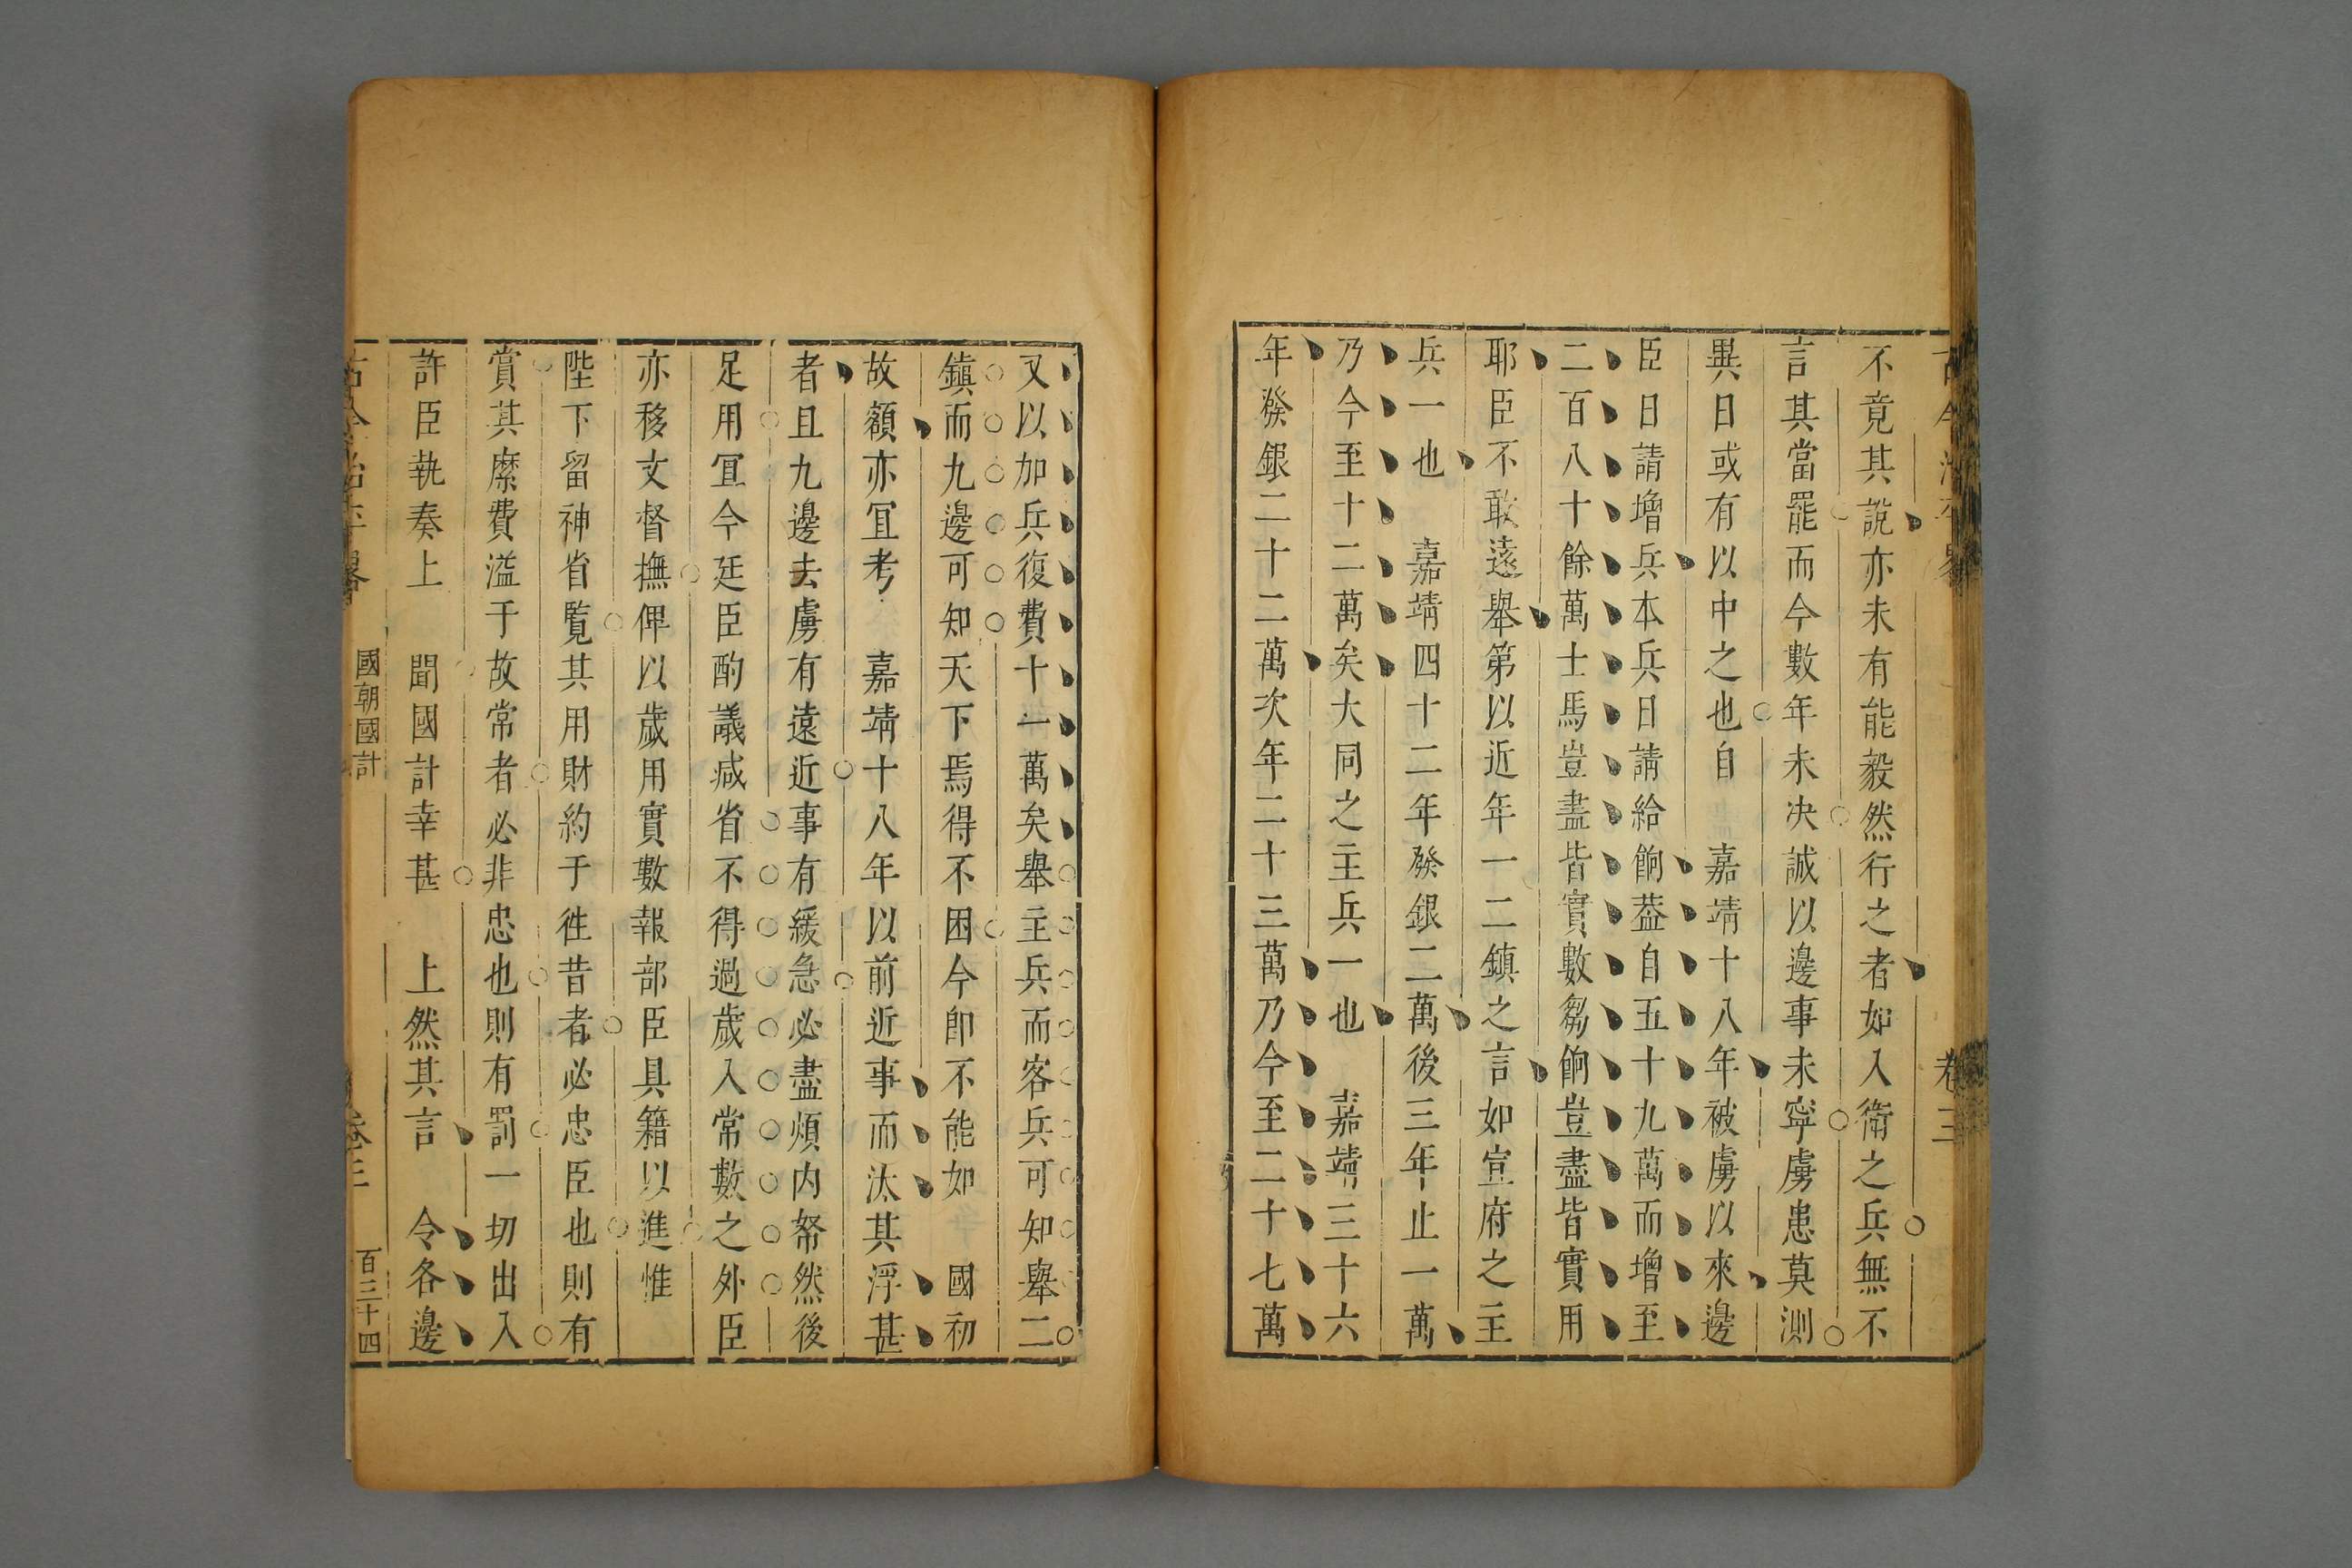 不竟其說亦未有能毅然行之者如入衛之兵無不
言其當罷而今數年未决誠以邊事未寧虜患莫測
異日或有以中之也自 嘉靖十八年被虜以來邊
臣日請增兵本兵日請給餉葢自五十九萬而增至
二百八十餘萬士馬豈盡皆實數芻餉豈盡皆實用
耶臣不敢遠舉第以近年一二鎮之言如宣府之主
兵一也 嘉靖四十二年發銀二萬後三年止一萬
乃今至十二萬矣大同之主兵一也 嘉靖三十六
年發銀二十二萬次年二十三萬乃今至二十七萬
卷三
又以加兵復費十一萬矣舉主兵而客兵可知舉二
鎮而九邊可知天下焉得不困今卽不能如 國初
故額亦宜考 嘉靖十八年以前近事而汰其浮甚
者且九邊去虜有遠近事有緩急必盡煩内帑然後
足用宜令廷臣酌議减省不得過歲入常數之外臣
亦移文督撫俾以歲用實數報部臣具籍以進惟
陛下留神省覧其用財約于徃昔者必忠臣也則有
賞其縻費溢于故常者必非忠也則有罰一切出入
許臣執奏上 聞國計幸甚 上然其言 令各邊
國朝國計
卷三
百三十四